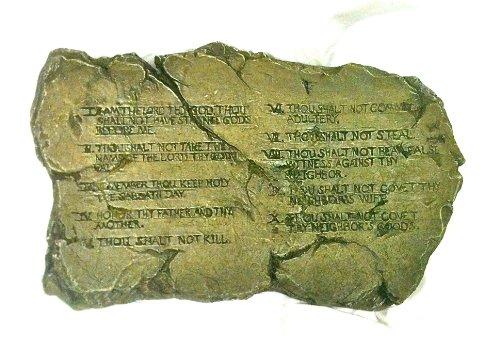 I. I AM THE LORD THY GOD THOU
SHALL NOT HAVE STRANGE GODS
BEFORE ME.
II. THOU SHALT NOT TAKE THE
NAME OF THE LORD THY GOD IN
VAIN.
III. REMEMBER THOU KEEP HOLY
THE SABBATH DAY.
IV. HONOR THY FATHER AND THY
MOTHER.
V. THOU SHALT NOT KILL.
VI. THOU SHALT NOT COMMIT
ADULTERY.
VII. THOU SHALT NOT STEAL.
VIII. THOU SHALT NOT BEAR FALSE
WITNESS AGAINST THY
NEIGHBOR.
IX. THOU SHALT NOT COVET THY
NEIGHBOR'S WIFE.
X. THOU SHALT NOT COVET
THY NEIGHBOR'S GOODS.